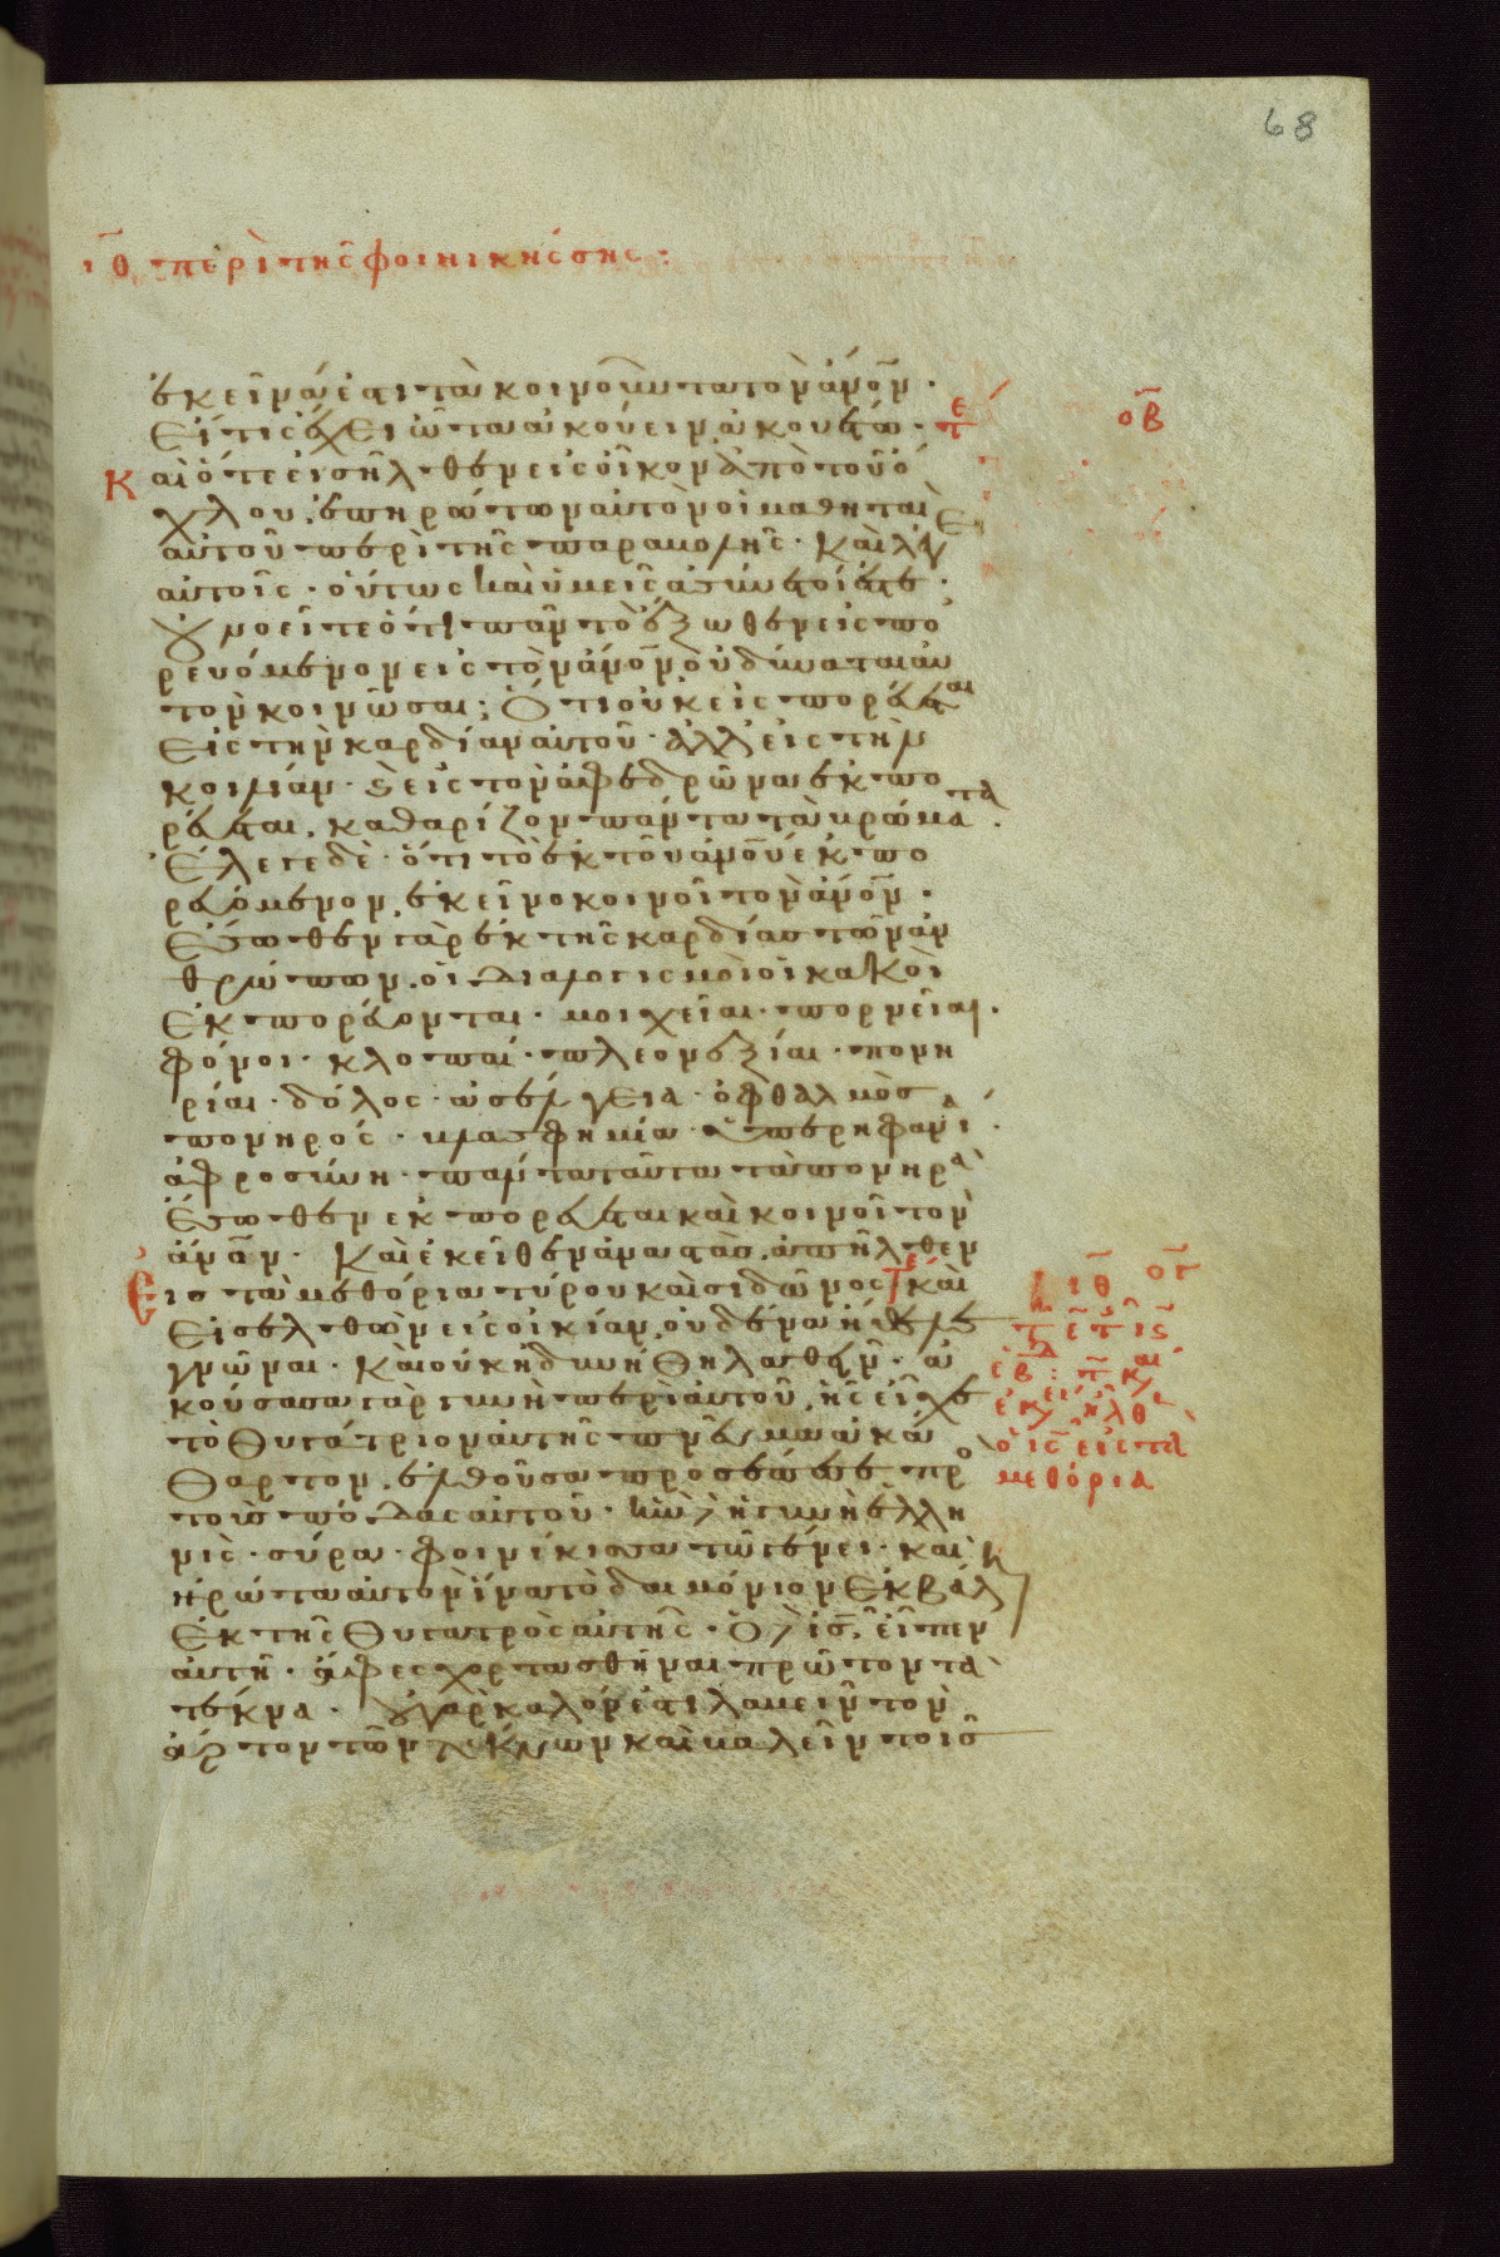 68
ιθ περὶ της φοινικήσσης:
ἐκεῖνά ἐστι τὰ κοινοῦντα τὸν ἀνον̅.
Εἴ τις ἔχει ὦτα ἀκούειν ἀκουέτω. τε
οβ
Καὶ ὅτε εἰσῆλθεν εἰς οἶκον ἀπὸ τοῦ ὄ
χλου, ἐπηρώτων αὐτὸν οἱ μαθηταὶ
αὐτοῦ περὶ τῆς παραβολῆς. Καὶ λέγει
αὐτοῖς. οὕτως καὶ ὑμεῖς ἀσύνετοί ἐστε.
Οὐ νοεῖτε ὅτι πᾶν τὸ ἔξωθεν εἰσπο
ρευόμενον εἰς τὸν ἀνον̅ οὐ δύναται αὐ
τὸν κοινῶσαι; Ὅτι οὐκ εἰσπορεύεται
εἰς τὴν καρδίαν αὐτοῦ. ἀλλ' εἰς τὴν
κοιλίαν. ϗ εἰς τὸν ἀφεδρῶνα ἐκπο
ρεύεται, καθαρίζον πάντα τὰ βρώματα.
Ἔλεγε δὲ. ὅτι τὸ ἐκ τοῦ ἀνου̅ ἐκπο
ρευόμενον, ἐκεῖνο κοινοῖ τὸν ἀνον̅.
Ἔσωθεν γὰρ ἐκ τῆς καρδίας τῶν ἀν
θρώπων, οἱ διαλογισμοὶ οἱ κακοὶ
ἐκπορεύονται. μοιχεῖαι. πορνεῖαι.
φόνοι. κλοπαί. πλεονεξίαι. πονη
ρίαι. δόλος. ἀσέλγεια. ὀφθαλμὸς
πονηρός. βλασφημία. ὑπερηφανία.
ἀφροσύνη. πάντα ταῦτα τὰ πονηρὰ
ἔσωθεν ἐκπορεύεται καὶ κοινοῖ τὸν
ἀνον̅. Καὶ ἐκεῖθεν ἀναστὰς, ἀπῆλθεν
εἰς τὰ μεθόρια τύρου καὶ σιδῶνος τε καὶ
ιθ ογ
εἰσελθὼν εἰς οἰκίαν, οὐδένα ἤθελε
γνῶναι. Καὶ οὐκ ἠδυνήθη λαθεῖν. ἀ
κούσασα γὰρ γυνὴ περὶ αὐτοῦ, ἧς εἶχε
τὸ θυγάτριον αὐτῆς πνεῦμα ἀκά
ὁ ις̅ εἰς τὰ
θαρτον, ἐλθοῦσα προσέπεσε πρὸ
μεθόρια
τοὺς πόδας αὐτοῦ. ἦν δὲ ἡ γυνὴ ἑλλη
νὶς. σύρα. φοινίκισσα τῶ γένει. καὶ
ἠρώτα αὐτὸν ἵνα τὸ δαιμόνιον ἐκβάλη
ἐκ τῆς θυγατρὸς αὐτῆς. Ὁ δὲ ις̅, εἶπεν
αὐτῆ. ἄφες χορτασθῆναι πρῶτον τὰ
τέκνα. Οὐ γὰρ καλόν ἐστι λαβεῖν τὸν
ἄρτον τῶν τέκνων καὶ βαλεῖν τοῖς